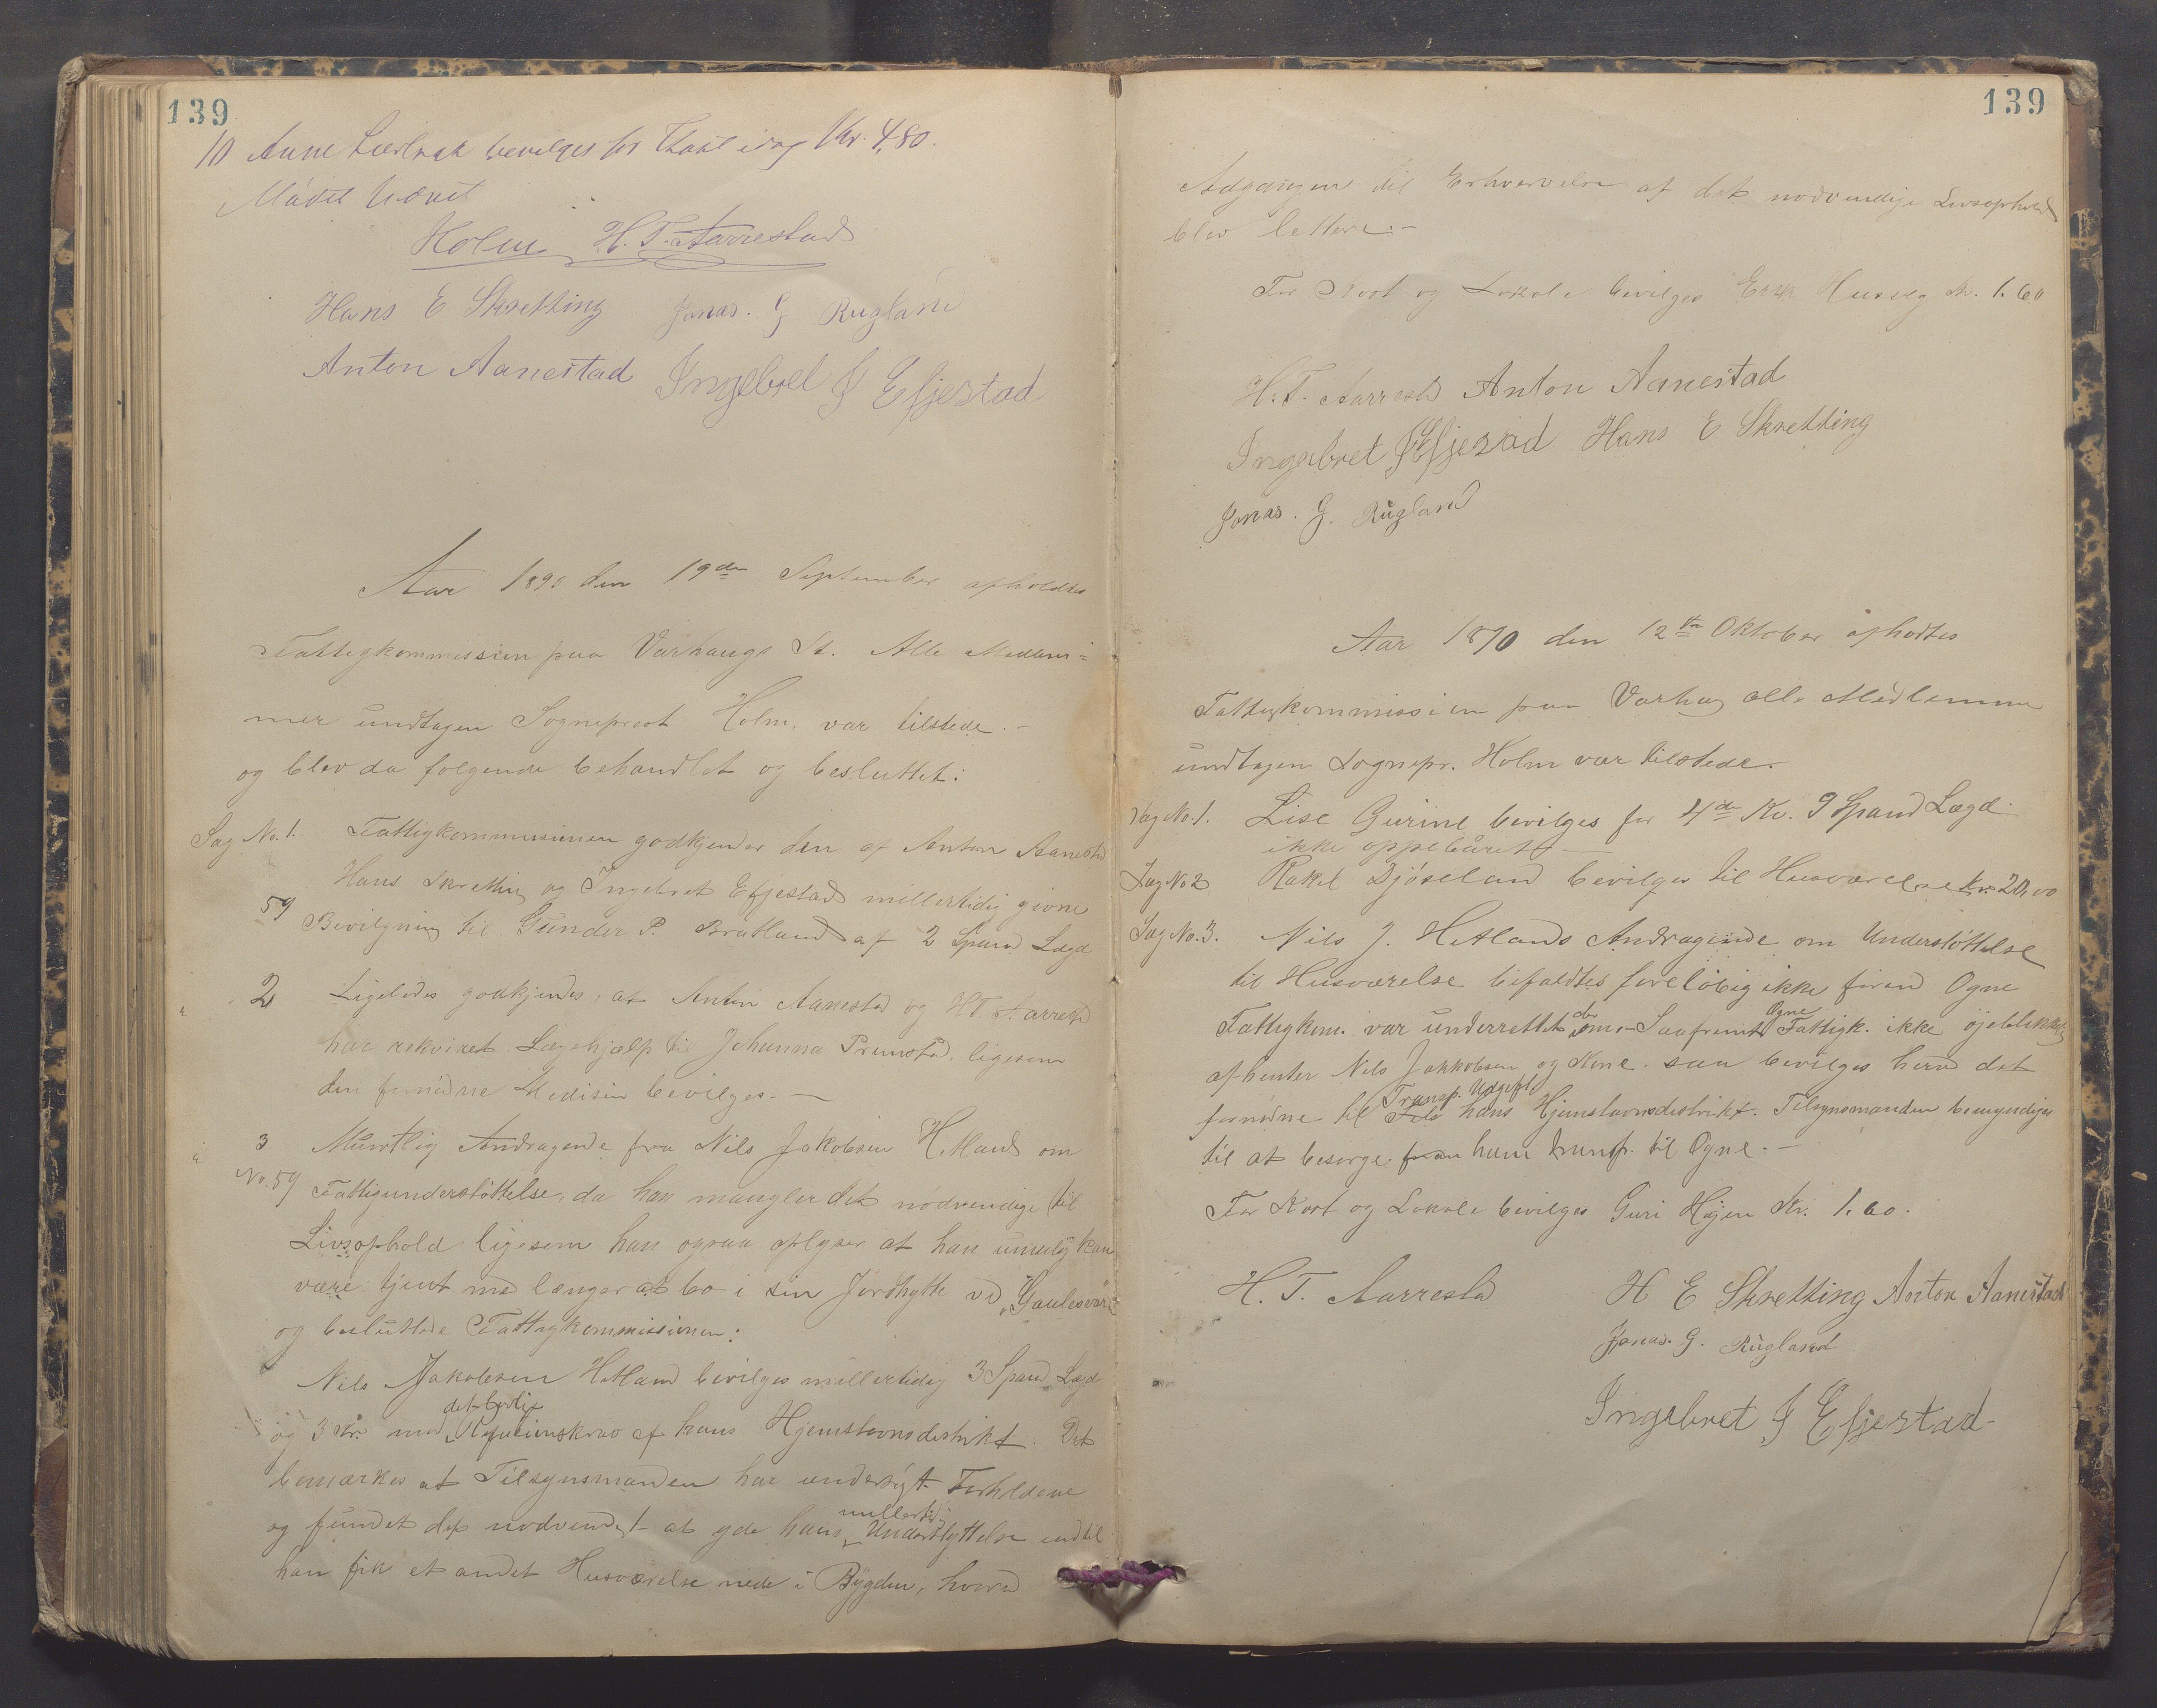 139
10 Anne bevilges for idag Kr. 4,80.
Mødet hævet
Holm H. T. Aarrestad
Hans E Skretting Jonas. G Rugland
Anton Aanestad Ingebret J Efjestad
Aar 1890 den 19de September afholdtes
Fattigkommission paa Varhaugs St. Alle Medlem-
mer undtagen Sogneprest Holm, var tilstede.-
og blev da følgende behandlet og besluttet:
Sag No. 1. Fattigkommissionen godkjender den af Anton Aanestad
Hans Skretting og Ingebret Efjestad millertidig givne
59 Bevilgning til Gunder P. Bratland af 2 Spand Lægd
2 Ligeledes godkjendes, at Anton Aanestad og H T. Aarrestd
har rekviret Lægehjælp til Johanna ligesom
den fornødne Medisin bevilges.-
3 Mundtlig Andragende fra Nils Jakobsen Hetland om
No. 59 Fattigunderstøttelse, da han mangler det nødvendige til
Livsophold ligesom han ogsaa oplyser at han umulig kan
være tjent med længer at bo i sin Jordhytte ved
og besluttede Fattigkommissionen:
Nils Jakobsen Hetland bevilges millertidig 3 Spand Lægd
og 3 Kr. med Refusionskrav af hans Hjemstavnsdistrikt. Det
bemærkes at Tilsynsmanden har undersøgt Forholdene
og fundet det nødvendigt at yde ham millertidig Understyttelse indtil
han fik et andet Husværelse nede i Bygden, hvorved
139
Adgangen til Erhvervelse af det nødvendige Livsophold
blev lettere.-
For Kost og Lokale bevilges Kr. 1.60
H. T. Aarrestd Anton Aanestad
Ingebret J Efjesad Hans E Skretting
Jonas. G. Rugland
Aar 1890 den 12te Oktober afhodtes
Fattigkommission paa Varhaug alle Medlemme
undtagen Sognepr. Holm var tilstede.
Sag No. 1. Lise Gurine bevilges for 4de Kv. 9 Spand Lægd.
ikke oppebåret
Sag No 2 Rakel Djøseland bevilges til Husværelse Kr. 20,00
Sag No. 3. Nils J. Hetlands Andragende om Understøttelse
til Husværelse bifaldtes foreløbig ikke førend Ogne
Fattigkom. var underrettet derom.- Saafremt Ogne Fattigk. ikke øjeblikkelig
afhenter Nils Jakkobsen og Kone. saa bevilges herved det
fornødne til Transp. Udgift hans Hjemstavnsdistrikt. Tilsynsmanden bemyndiges
til at besørge ham transp. til Ogne.-
For Kost og Lokale bevilges Guri Højen Kr. 1.60.
H. T. Aarrestd H E Skretting Anton Aanestad
Jonas. G. Rugland
Ingebret J Efjestad